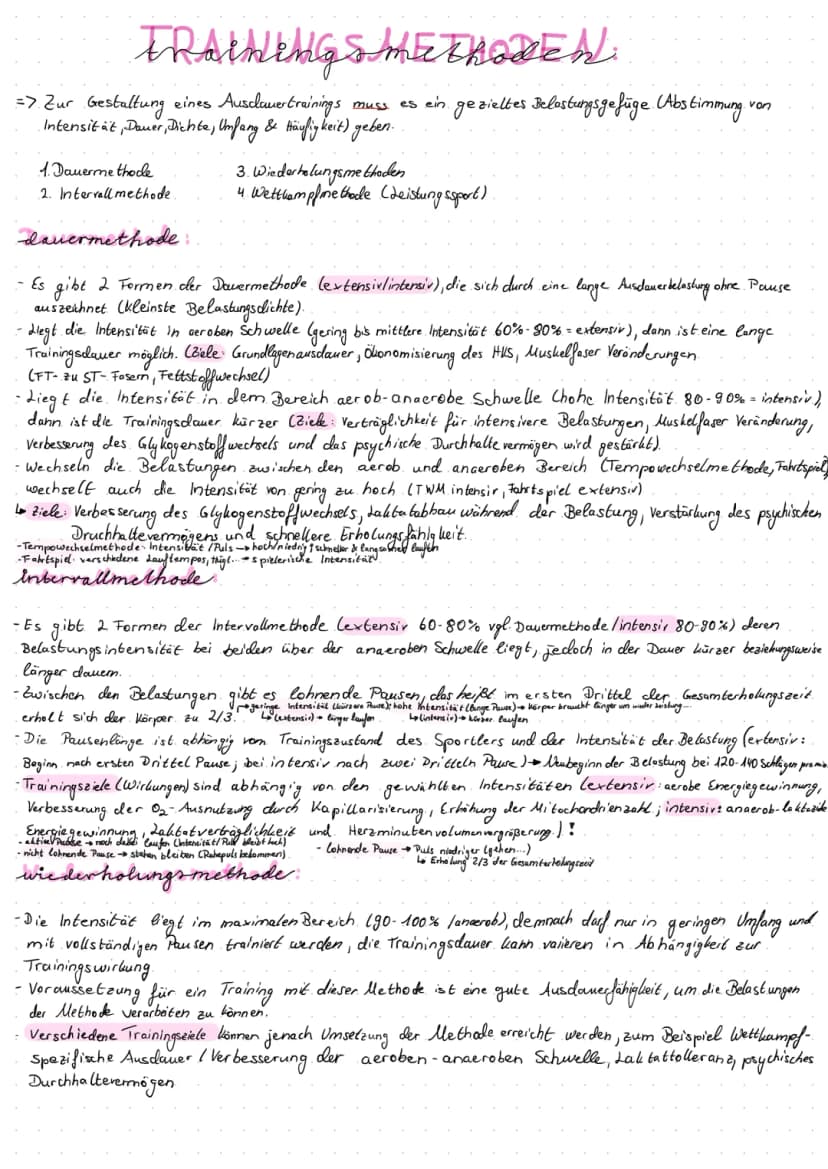 TRAININGSMETHODEN:
trainingsmethoden
=> Zur Gestaltung eines Ausdauertrainings muss es ein gezieltes Belastungsgefüge (Abstimmung von
Intensität, Dauer, Dichte, Umfang & Häufigkeit) geben.
1. Dauermethode 3. Wiederholungsmethoden
2. Intervallmethode 4. Wettkampfmethode (Leistungssport)
dauermethode:
- Es gibt 2 Formen der Dauermethode (extensiv/intensiv), die sich durch eine lange Ausdauerbelastung ohne Pause
auszeichnet (kleinste Belastungsdichte).
- Liegt die Intensität in aeroben Schwelle (gering bis mittlere Intensität 60%-80% = extensiv), dann ist eine lange
Trainingsdauer möglich. (Ziele: Grundlagenausdauer, Ökonomisierung des HKS, Muskelfaser Veränderungen
(FT- zu ST- Fasern, Fettstoffwechsel)
- Liegt die Intensität in dem Bereich aerob-anaerobe Schwelle (hohe Intensität 80-90% = intensiv),
dann ist die Trainingsdauer kürzer (Ziele: Verträglichkeit für intensivere Belastungen, Muskelfaser Veränderung,
Verbesserung des Glykogenstoffwechsels und das psychische Durchhaltevermögen wird gestärkt).
- Wechseln die Belastungen zwischen den aerob und anaeroben Bereich (Tempowechselmethode, Fahrtspiel)
wechselt auch die Intensität von gering zu hoch (TWM intensiv, Fahrtspiel extensiv)
↳ Ziele: Verbesserung des Glykogenstoffwechsels, Laktatabbau während der Belastung, Verstärkung des psychischen
Druchhaltevermögens und schnellere Erholungsfähigkeit.
- Tempowechselmethode: Intensität / Puls → hoch/niedrig, schneller & langsamer laufen
- Fahrtspiel: verschiedene Lauftempos, Hügel... → spielerische Intensität
intervallmethode:
- Es gibt 2 Formen der Intervallmethode (extensiv 60-80% vgl. Dauermethode/intensiv 80-90%) deren
Belastungsintensität bei beiden über der anaeroben Schwelle liegt, jedoch in der Dauer kürzer beziehungsweise
länger dauern.
- Zwischen den Belastungen gibt es lohnende Pausen, das heißt im ersten Drittel der Gesamterholungszeit
→ geringe Intensität (kürzere Pause); hohe Intensität (lange Pause) → Körper braucht länger um wieder
erholt sich der Körper zu 2/3. ↳ (extensiv) → länger laufen ↳ (intensiv) → kürzer laufen
- Die Pausenlänge ist abhängig vom Trainingszustand des Sportlers und der Intensität der Belastung (extensiv:
Beginn nach ersten Drittel Pause; bei intensiv nach zwei Dritteln Pause) → Neubeginn der Belastung bei 120-140 Schlägen pro min
- Trainingsziele (Wirkungen) sind abhängig von den gewählten Intensitäten (extensiv: aerobe Energiegewinnung,
Verbesserung der O₂-Ausnutzung durch Kapillarisierung, Erhöhung der Mitochondrienzahl; intensiv: anaerob-laktazide
Energiegewinnung, Laktatverträglichkeit und Herzminutenvolumenvergrößerung.) !
- aktive Pause → noch dabei laufen (Intensität/Puls bleibt hoch) - Lohnende Pause → Puls niedriger (gehen...)
- nicht lohnende Pause → stehen bleiben (Ruhepuls bekommen) ↳ Erholung 2/3 der Gesamterholungszeit
wiederholungsmethode:
- Die Intensität liegt im maximalen Bereich (90-100% / anaerob), demnach darf nur in geringen Umfang und
mit vollständigen Pausen trainiert werden, die Trainingsdauer kann variieren in Abhängigkeit zur
Trainingswirkung
- Voraussetzung für ein Training mit dieser Methode ist eine gute Ausdauerfähigkeit, um die Belastungen
der Methode verarbeiten zu können.
- Verschiedene Trainingsziele können jenach Umsetzung der Methode erreicht werden, zum Beispiel Wettkampf-
spezifische Ausdauer / Verbesserung der aeroben-anaeroben Schwelle, Laktattolleranz, psychisches
Durchhaltevermögen